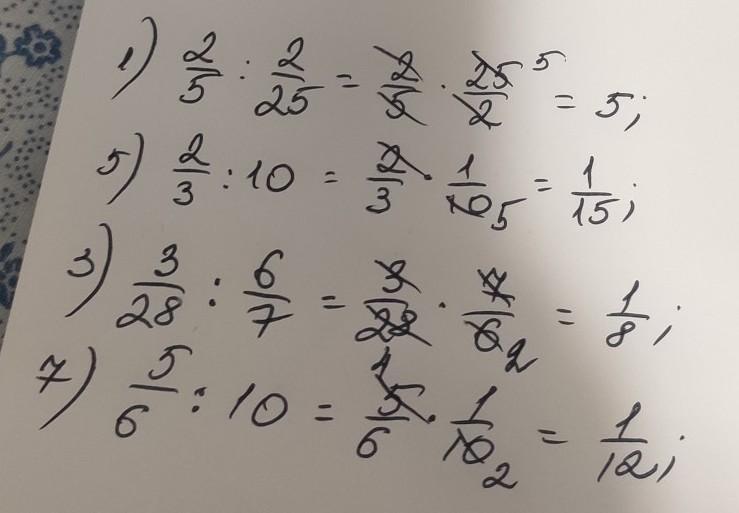 1) 2/5 : 2/25 = 2/5 · 25/2 5 = 5;
5) 2/3 : 10 = 2/3 · 1/10 5 = 1/15;
3) 3/28 : 6/7 = 3/28 · 7/6 2 = 1/8;
7) 5/6 : 10 = 1 5/6 · 1/10 2 = 1/12;